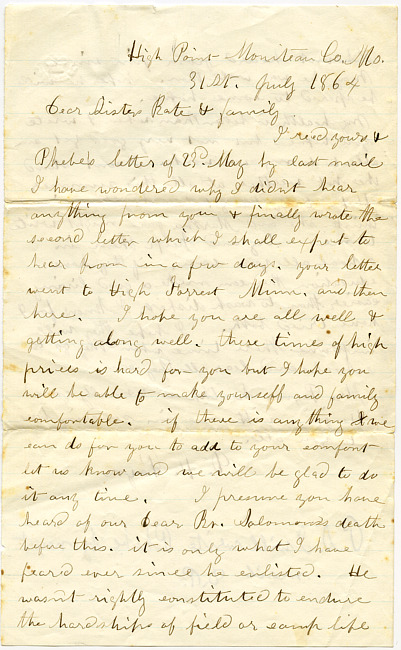 High Point Moniteau Co. Mo.
31st. July 1864
Dear Sister Kate & family
I recd yours &
Phebe's letter of 23d. May by last mail
I have wondered why I didn't hear
anything from you & finally wrote the
second letter which I shall expect to
hear from in a few days. your letter
went to High Forrest Minn. and then
here. I hope you are all well &
getting along well. these times of high
prices is hard for you but I hope you
will be able to make yourself and family
comfortable. if there is anything we
can do for you to add to your comfort
let us know and we will be glad to do
it any time. I presume you have
heard of our Dear Br. Solomons death
before this. it is only what I have
feard ever since he enlisted. He
wasn't rightly constituted to endure
the hardships of field or camp life